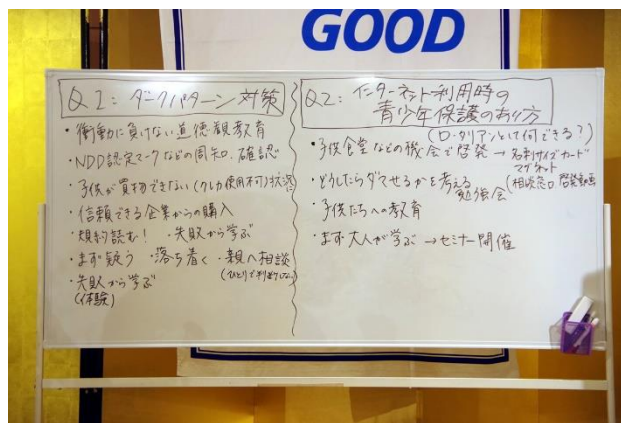 GOOD
Q1：ダークパターン対策
・衝動に負けない道徳観教育
・NDD認定マークなどの周知、確認
・子供が買物できない(クレカ使用不可)状況に
・信頼できる企業からの購入
・規約読む！ ・失敗から学ぶ
・まず疑う ・落ち着く ・親へ相談
(ひとりで判断しない)
・失敗から学ぶ
(体験)
Q2：インターネット利用時の
青少年保護のあり方
(ロータリアンとして何できる？)
・子供食堂などの機会で啓発 → 名刺サイズカード
マグネット
(相談窓口 啓発動画
・どうしたらダマせるかを考える
勉強会
・子供たちへの教育
・まず大人が学ぶ →セミナー開催